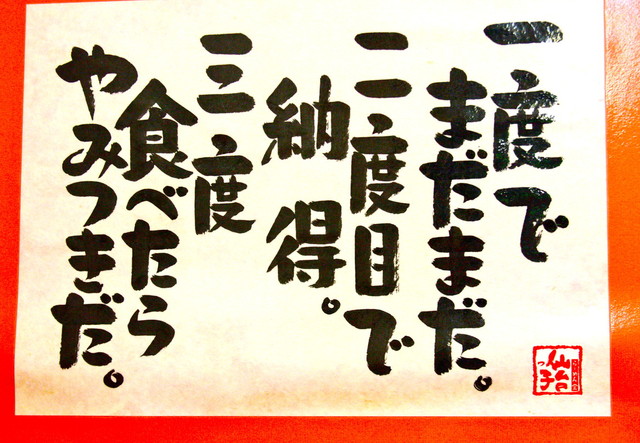 一度で
まだまだ。
二度目で
納得。
三度
食べたら
やみつきだ。
仙台
っ子